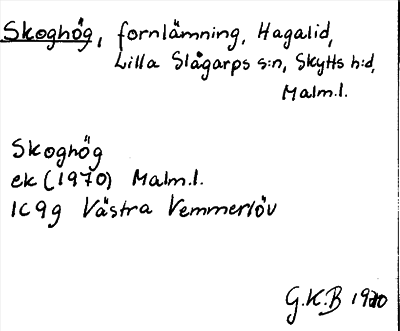 Skoghög, fornlämning, Hagalid,
Lilla Slågarps s:n, Skytts h:d,
Malm.l.
Skoghög
ek (1970) Malm.l.
1C9g Västra Vemmerlöv
G.K.B 1970